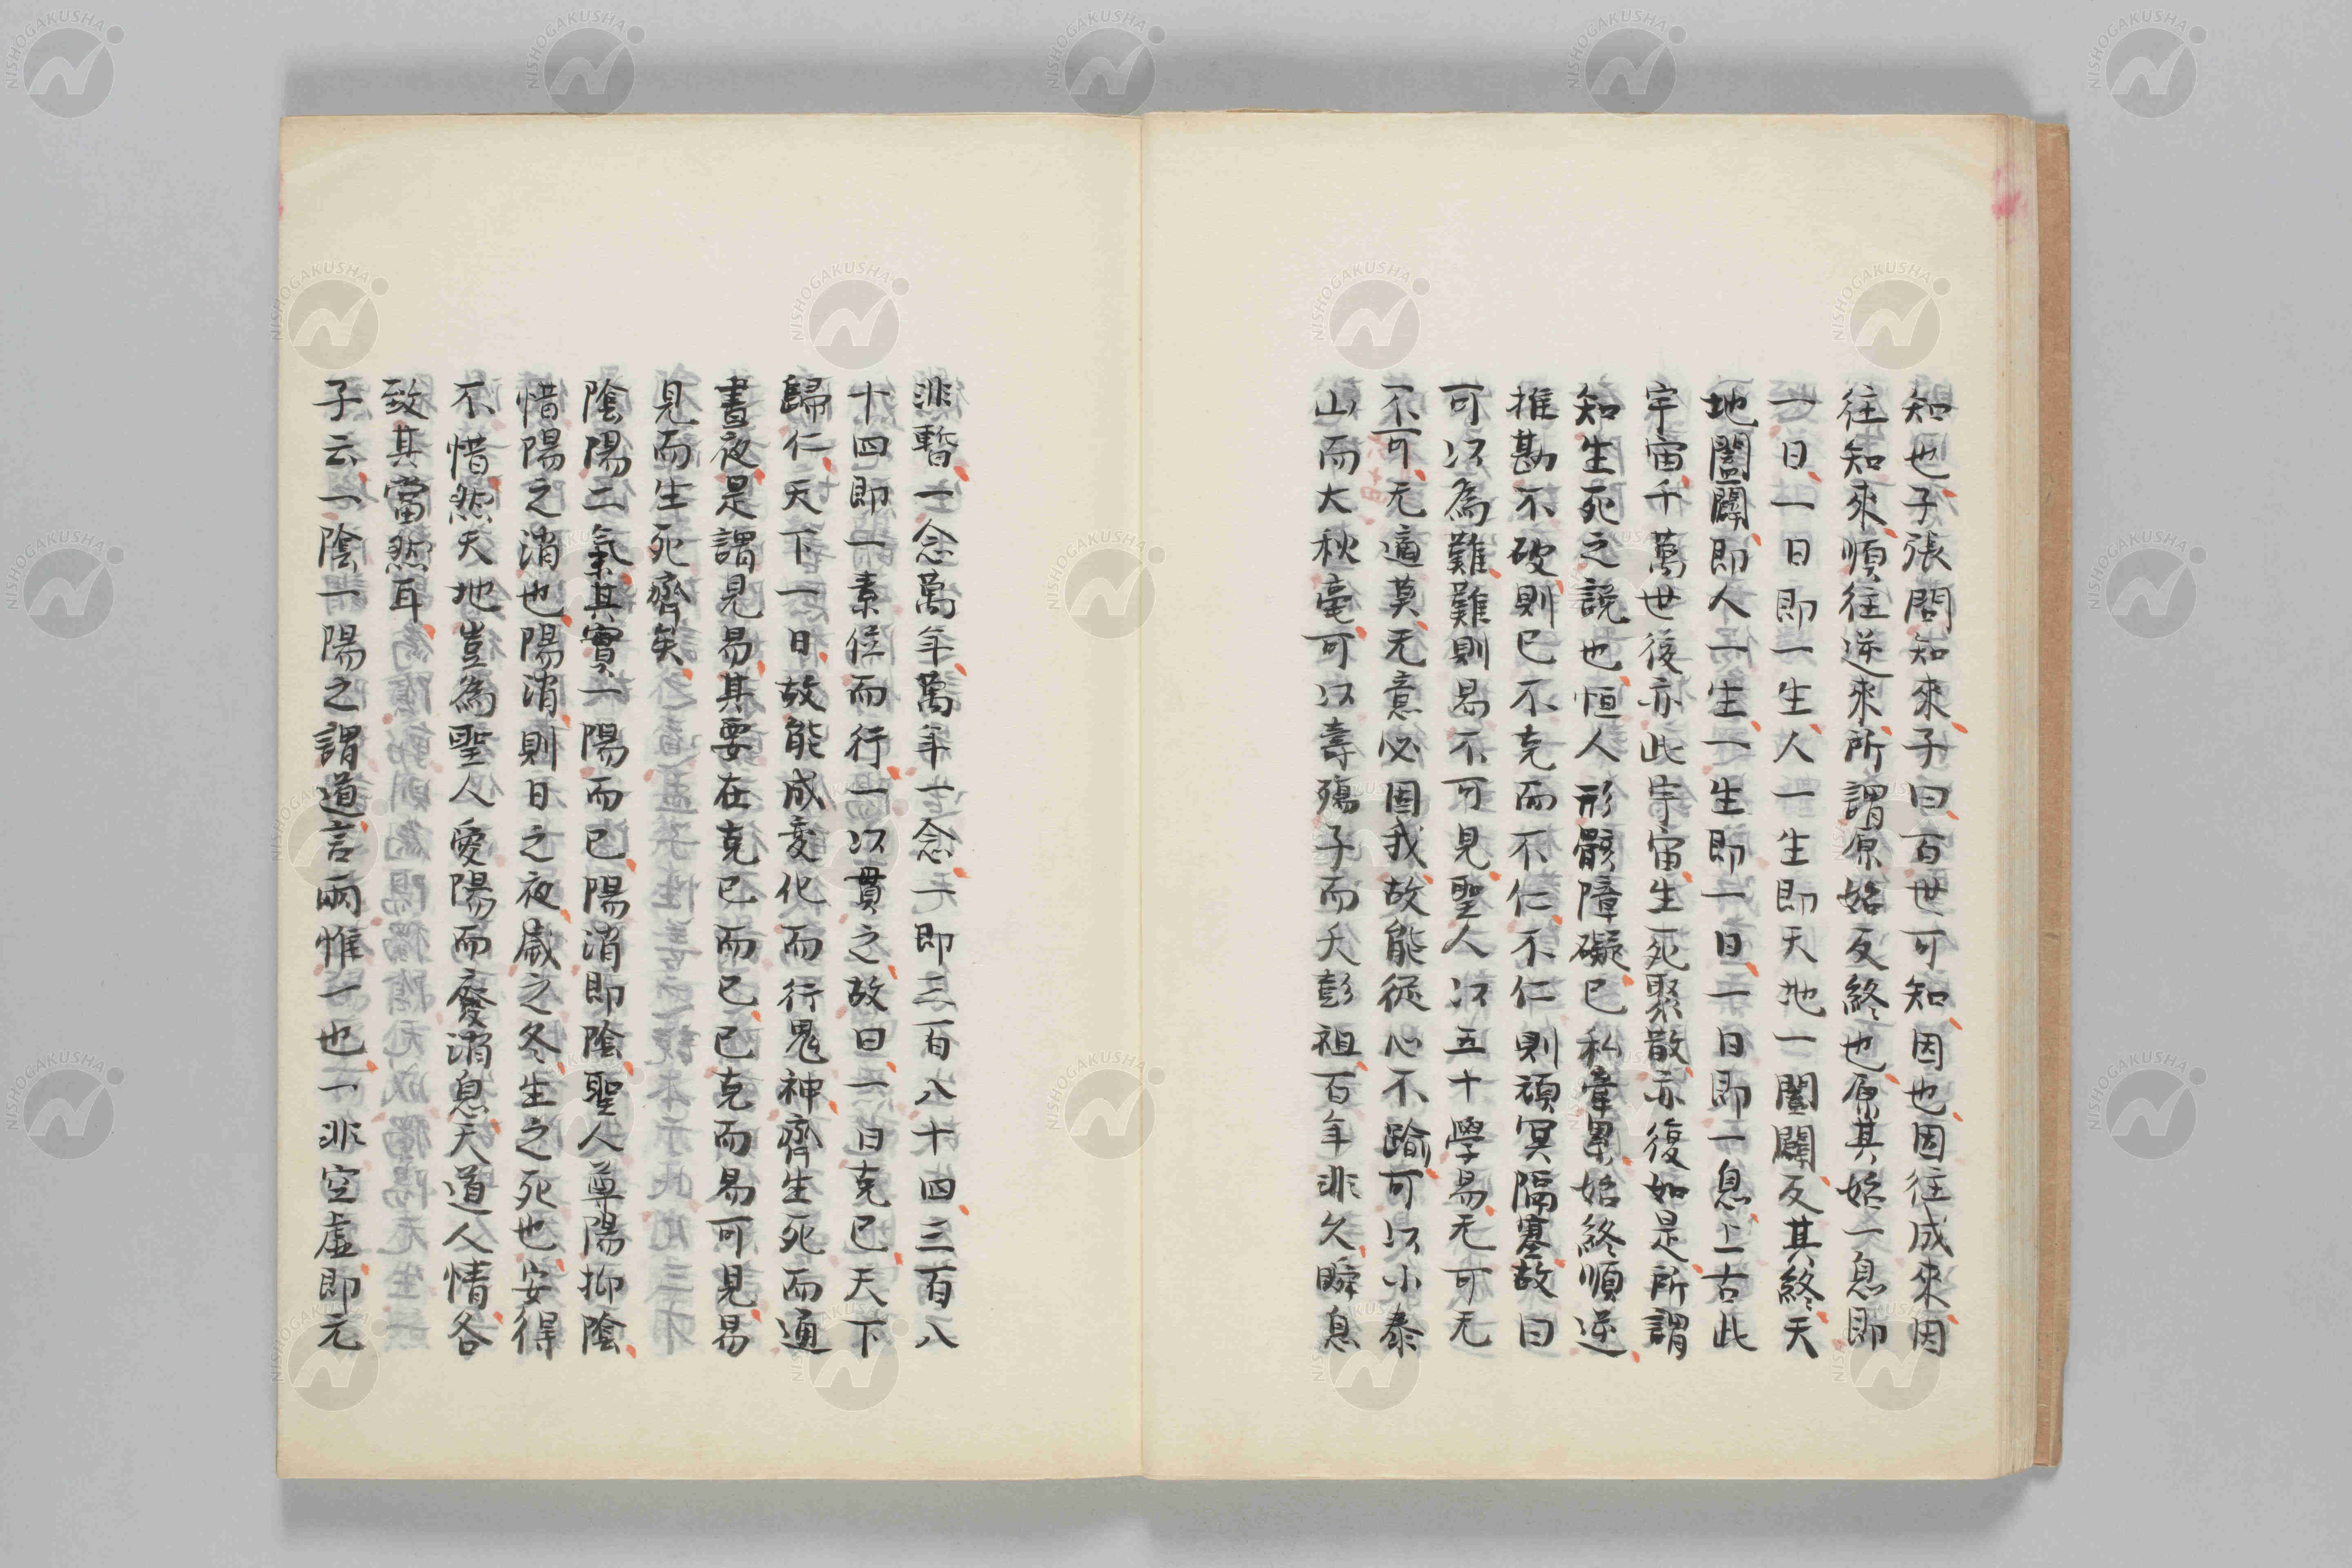 知也子張問知來子曰百世可知因也因往成來因
往知來順往逆來所謂原始反終也原其始一息即
一日一日即一生人一生即天地一闔闢反其終天
地闔闢即人一生一生即一日一日即一息上古此
宇宙千萬世後亦此宇宙生死聚散亦復如是所謂
知生死之說也恒人形骸障礙已私牽累始終順逆
推勘不破則已不克而不仁不仁則頑冥隔塞故曰
可以為難難則易不可見聖人以五十學易无可无
不可无適莫无意必固我故能從心不踰可以小泰
山而大秋毫可以壽殤子而夭彭祖百年非久瞬息
非暫一念萬年萬年一念一即三百八十四三百八
十四即一素位而行一以貫之故曰一日克已天下
歸仁天下一日故能成變化而行鬼神齊生死而通
晝夜是謂見易其要在克已而已已克而易可見易
見而生死齊矣
陰陽二氣其實一陽而已陽消即陰聖人尊陽抑陰
惜陽之消也陽消則日之夜歲之冬生之死也安得
不惜然天地豈為聖人愛陽而廢消息天道人情各
致其當然耳
子云一陰一陽之謂道言兩惟一也一非空虛即元
NISHOGAKUSHA